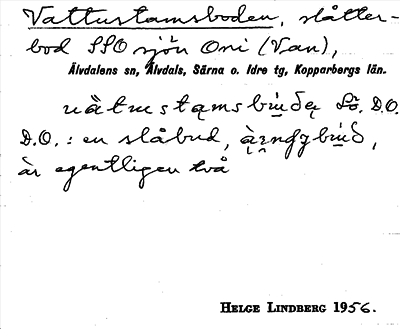 Vattustamsboden, slåtter-
bod SSO sjön Oni (Van),
Älvdalens sn, Älvdals, Särna o. Idre tg, Kopparbergs län.
Lö. D.O.
D.O.: en slåbud,
är egentligen två
HELGE LINDBERG 1956.